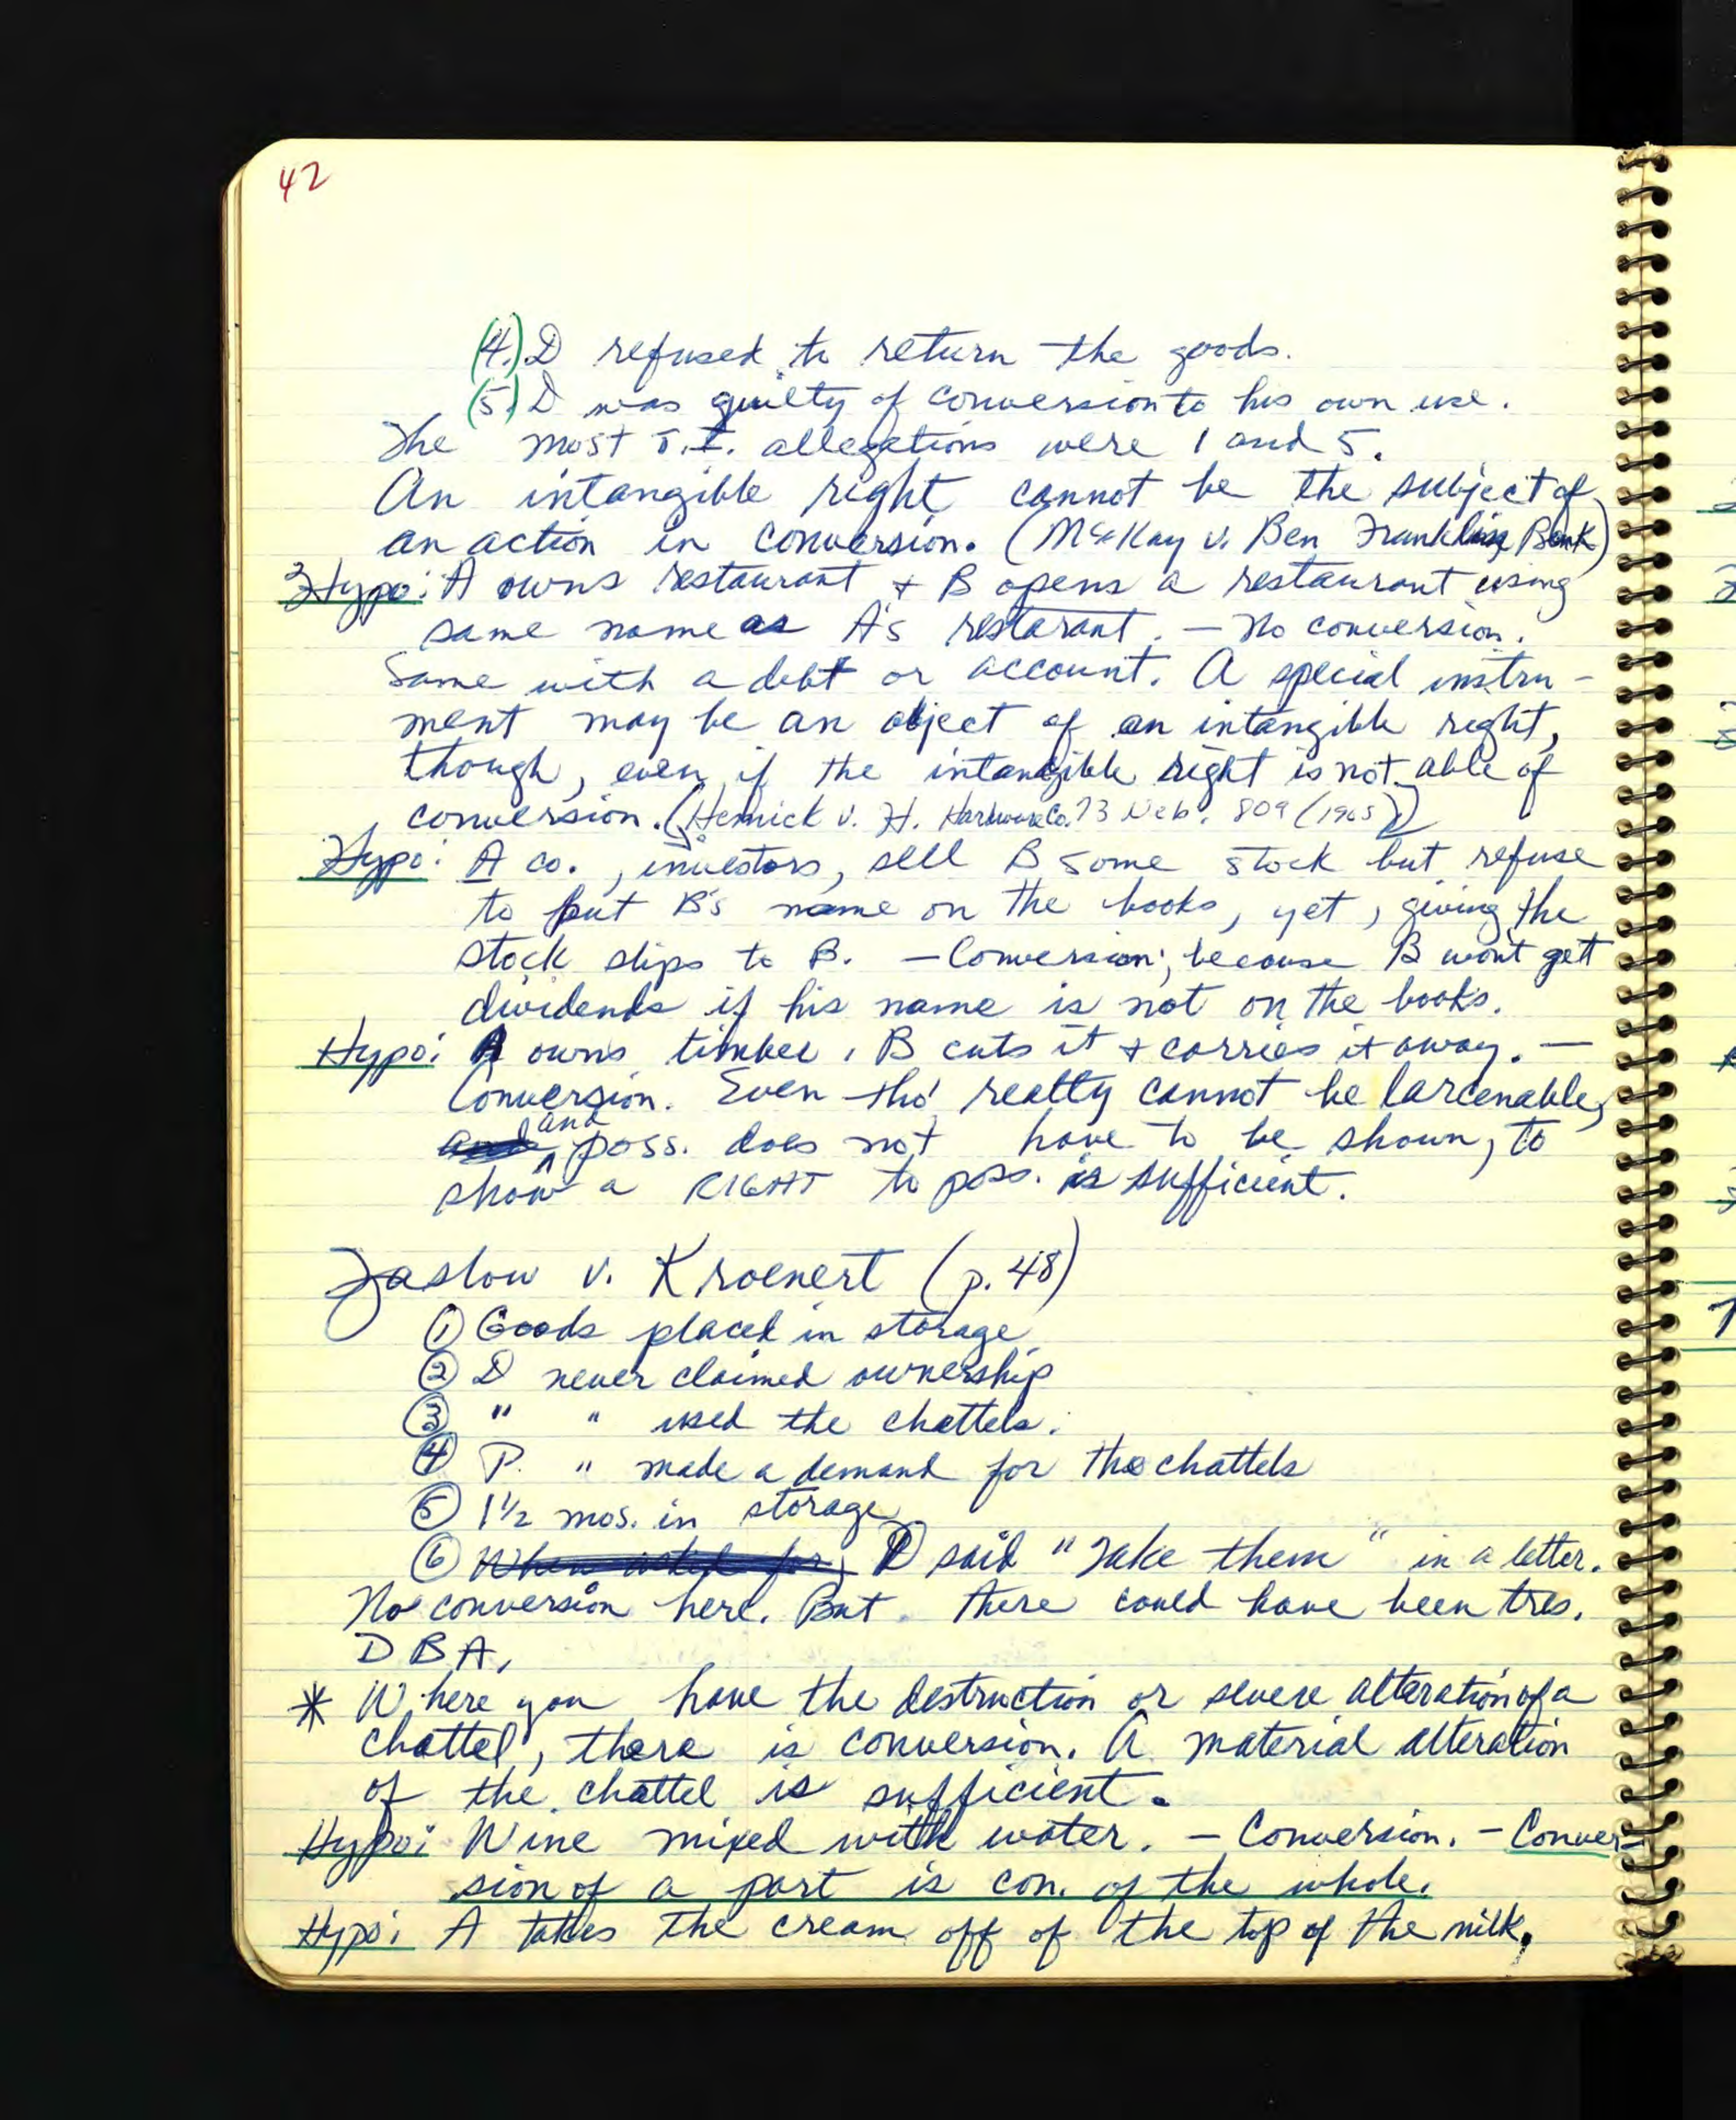 42
(4.) D refused to return the goods.
(5.) D was guilty of conversion to his own use.
The most allegations were 1 and 5.
An intangible right cannot be the subject of
an action in conversion. (McKay v. Ben Franklin Bank)
Hypo: A owns restaurant + B opens a restaurant using
same name as A's restarant. — No conversion.
Same with a debt or account. A special instru-
ment may be an object of an intangible right,
though, even if the intangible right is not able of
conversion. (Hennick v. H. Hardware Co. 73 Neb. 809 (1905))
Hypo: A co., investors, sell B some stock but refuse
to put B's name on the books, yet, giving the
stock slips to B. — Conversion; because B won't get
dividends if his name is not on the books.
Hypo: A owns timber, B cuts it + carries it away. —
Conversion. Even tho' realty cannot be larcenable,
and poss. does not have to be shown, to
show a RIGHT to poss. is sufficient.
Zaslow v. Kroenert (p. 48)
① Goods placed in storage
② D never claimed ownership
③ " " used the chattels.
④ P. " made a demand for the chattels
⑤ 1½ mos. in storage
⑥ D said "Take them" in a letter.
No conversion here. But there could have been tres.
D B A.
* Where you have the destruction or severe alteration of a
chattel, there is conversion. A material alteration
of the chattel is sufficient.
Hypo: Wine mixed with water. — Conversion. — Conver-
sion of a part is con. of the whole.
Hypo: A takes the cream off of the top of the milk.